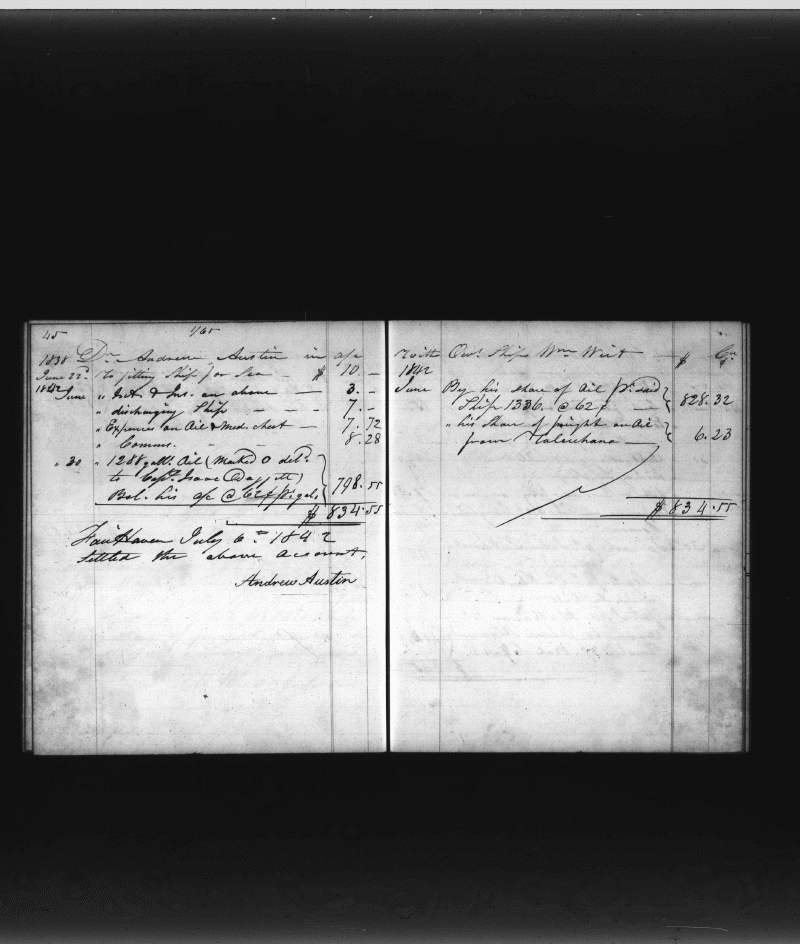 45 1/65
1838 Dr. Andrew Austin in a/c
June 22d. To fitting Ship for Sea — $ 10. —
1842 June " Int. & Ins. on above — 3. —
" discharging Ship — 7. —
" Expenses on Oil & Med. chest — 7. 72
" Commns. 8.28
" 30 " 1288 galls. Oil (Marked O deld.
to Capt. Isaac Daggett)
Bal. his a/c @ 62¢ pr. gal. 798.55
$ 834.55
FairHaven July 6th 1842
Settled the above account,
Andrew Austin
With Ows. Ship Wm Wirt — $ Cr
1842
June By his share of Oil pr. said
Ship 1336. @ 62¢ — 828.32
" his Share of freight on Oil
from Talcuhana — 6.23
$ 834.55